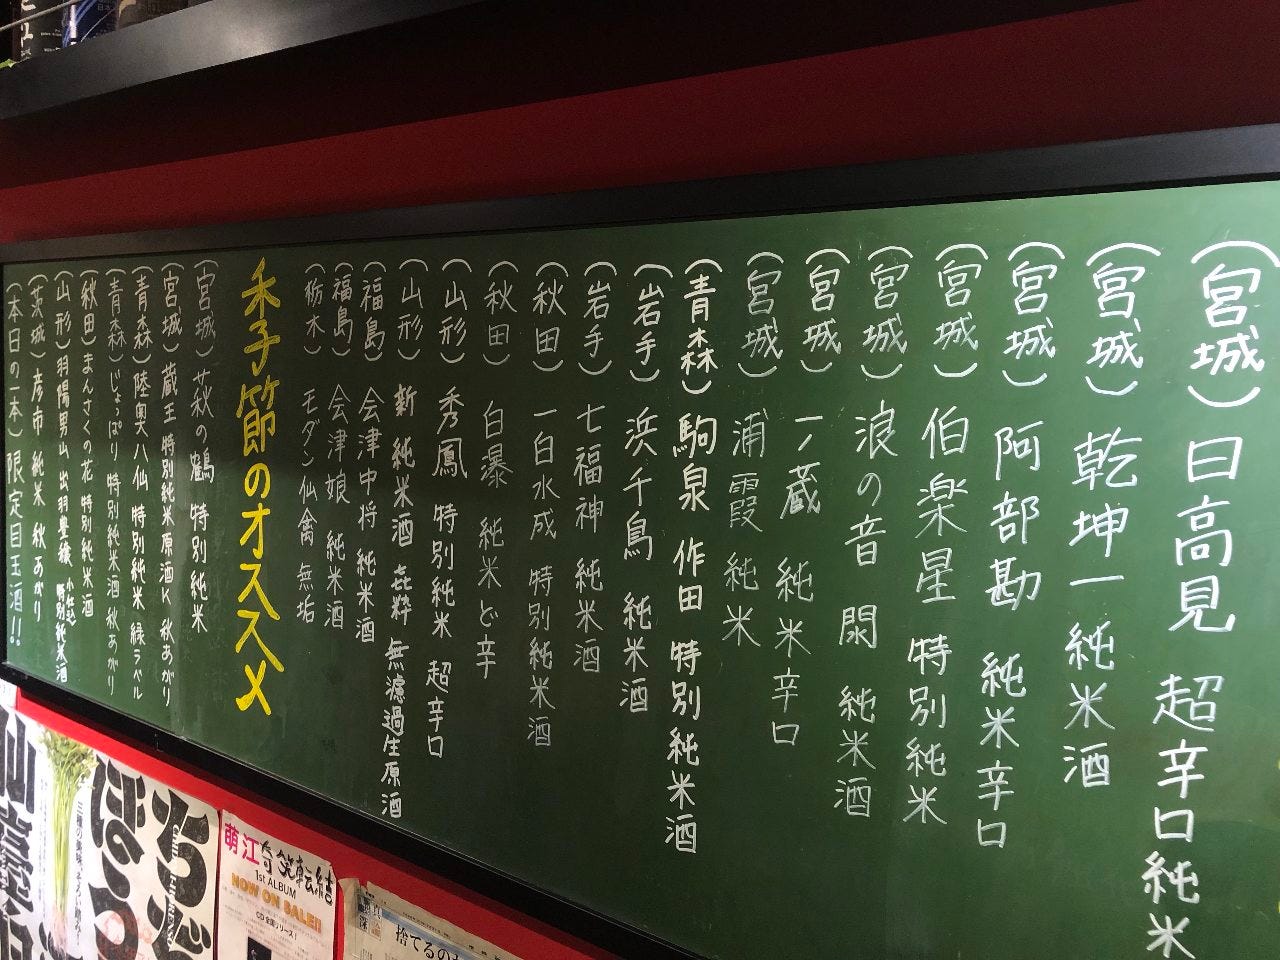 (宮城) 日高見 超辛口純米
(宮城) 乾坤一 純米酒
(宮城) 阿部勘 純米辛口
(宮城) 伯楽星 特別純米
(宮城) 浪の音 閖 純米酒
(宮城) 一ノ蔵 純米辛口
(宮城) 浦霞 純米
(青森) 駒泉 作田 特別純米酒
(岩手) 浜千鳥 純米酒
(岩手) 七福神 純米酒
(秋田) 一白水成 特別純米酒
(秋田) 白瀑 純米ど辛
(山形) 秀鳳 特別純米 超辛口
(山形) 新 純米酒 㐂粋 無濾過生原酒
(福島) 会津中将 純米酒
(福島) 会津娘 純米酒
(栃木) モダン仙禽 無垢
季節のオススメ
(宮城) 萩の鶴 特別純米
(宮城) 蔵王 特別純米原酒K 秋あがり
(青森) 陸奥八仙 特別純米 緑ラベル
(青森) じょっぱり 特別純米酒 秋あがり
(秋田) まんさくの花 特別純米酒
(山形) 羽陽男山 出羽豊穣 特別純米酒
(茨城) 彦市 純米 秋あがり
(本日の一本) 限定目玉酒!!
三種の美味、そろい踏み
萌江 奇笑転結
1st ALBUM
NOW ON SALE!!
CD全国リリース!
捨てるの